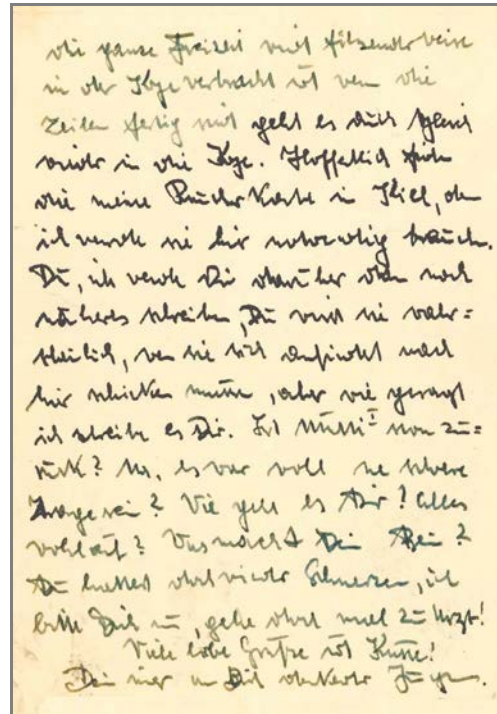 die ganze Freizeit wird sitzenderweise
in der Koje verbracht und wenn die
Zeilen fertig sind geht es auch gleich
wieder in die Koje. Hoffentlich
die meine Karte in Kiel, denn
ich werde sie hier notwendig brauchen.
Du, ich werde Dir darüber aber noch
näheres schreiben, Du wirst sie wahr=
scheinlich, wenn sie sich anfindet nach
hier schicken müssen, aber wie gesagt
ich schreibe es Dir. Ist Mutti schon zu=
rück? Na, es war wohl ne schwere
? Wie geht es Dir? Alles
wohlauf? Was macht Dein Bein?
Du hattest doch wieder Schmerzen, ich
bitte Dich, gehe doch mal zu Arzt!
Viele liebe Grüße und Küsse!
Dein immer an Dich denkender Jürgen.